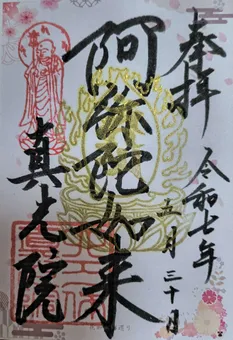 奉拝
令和七年
五月三十日
阿弥陀如来
真光院